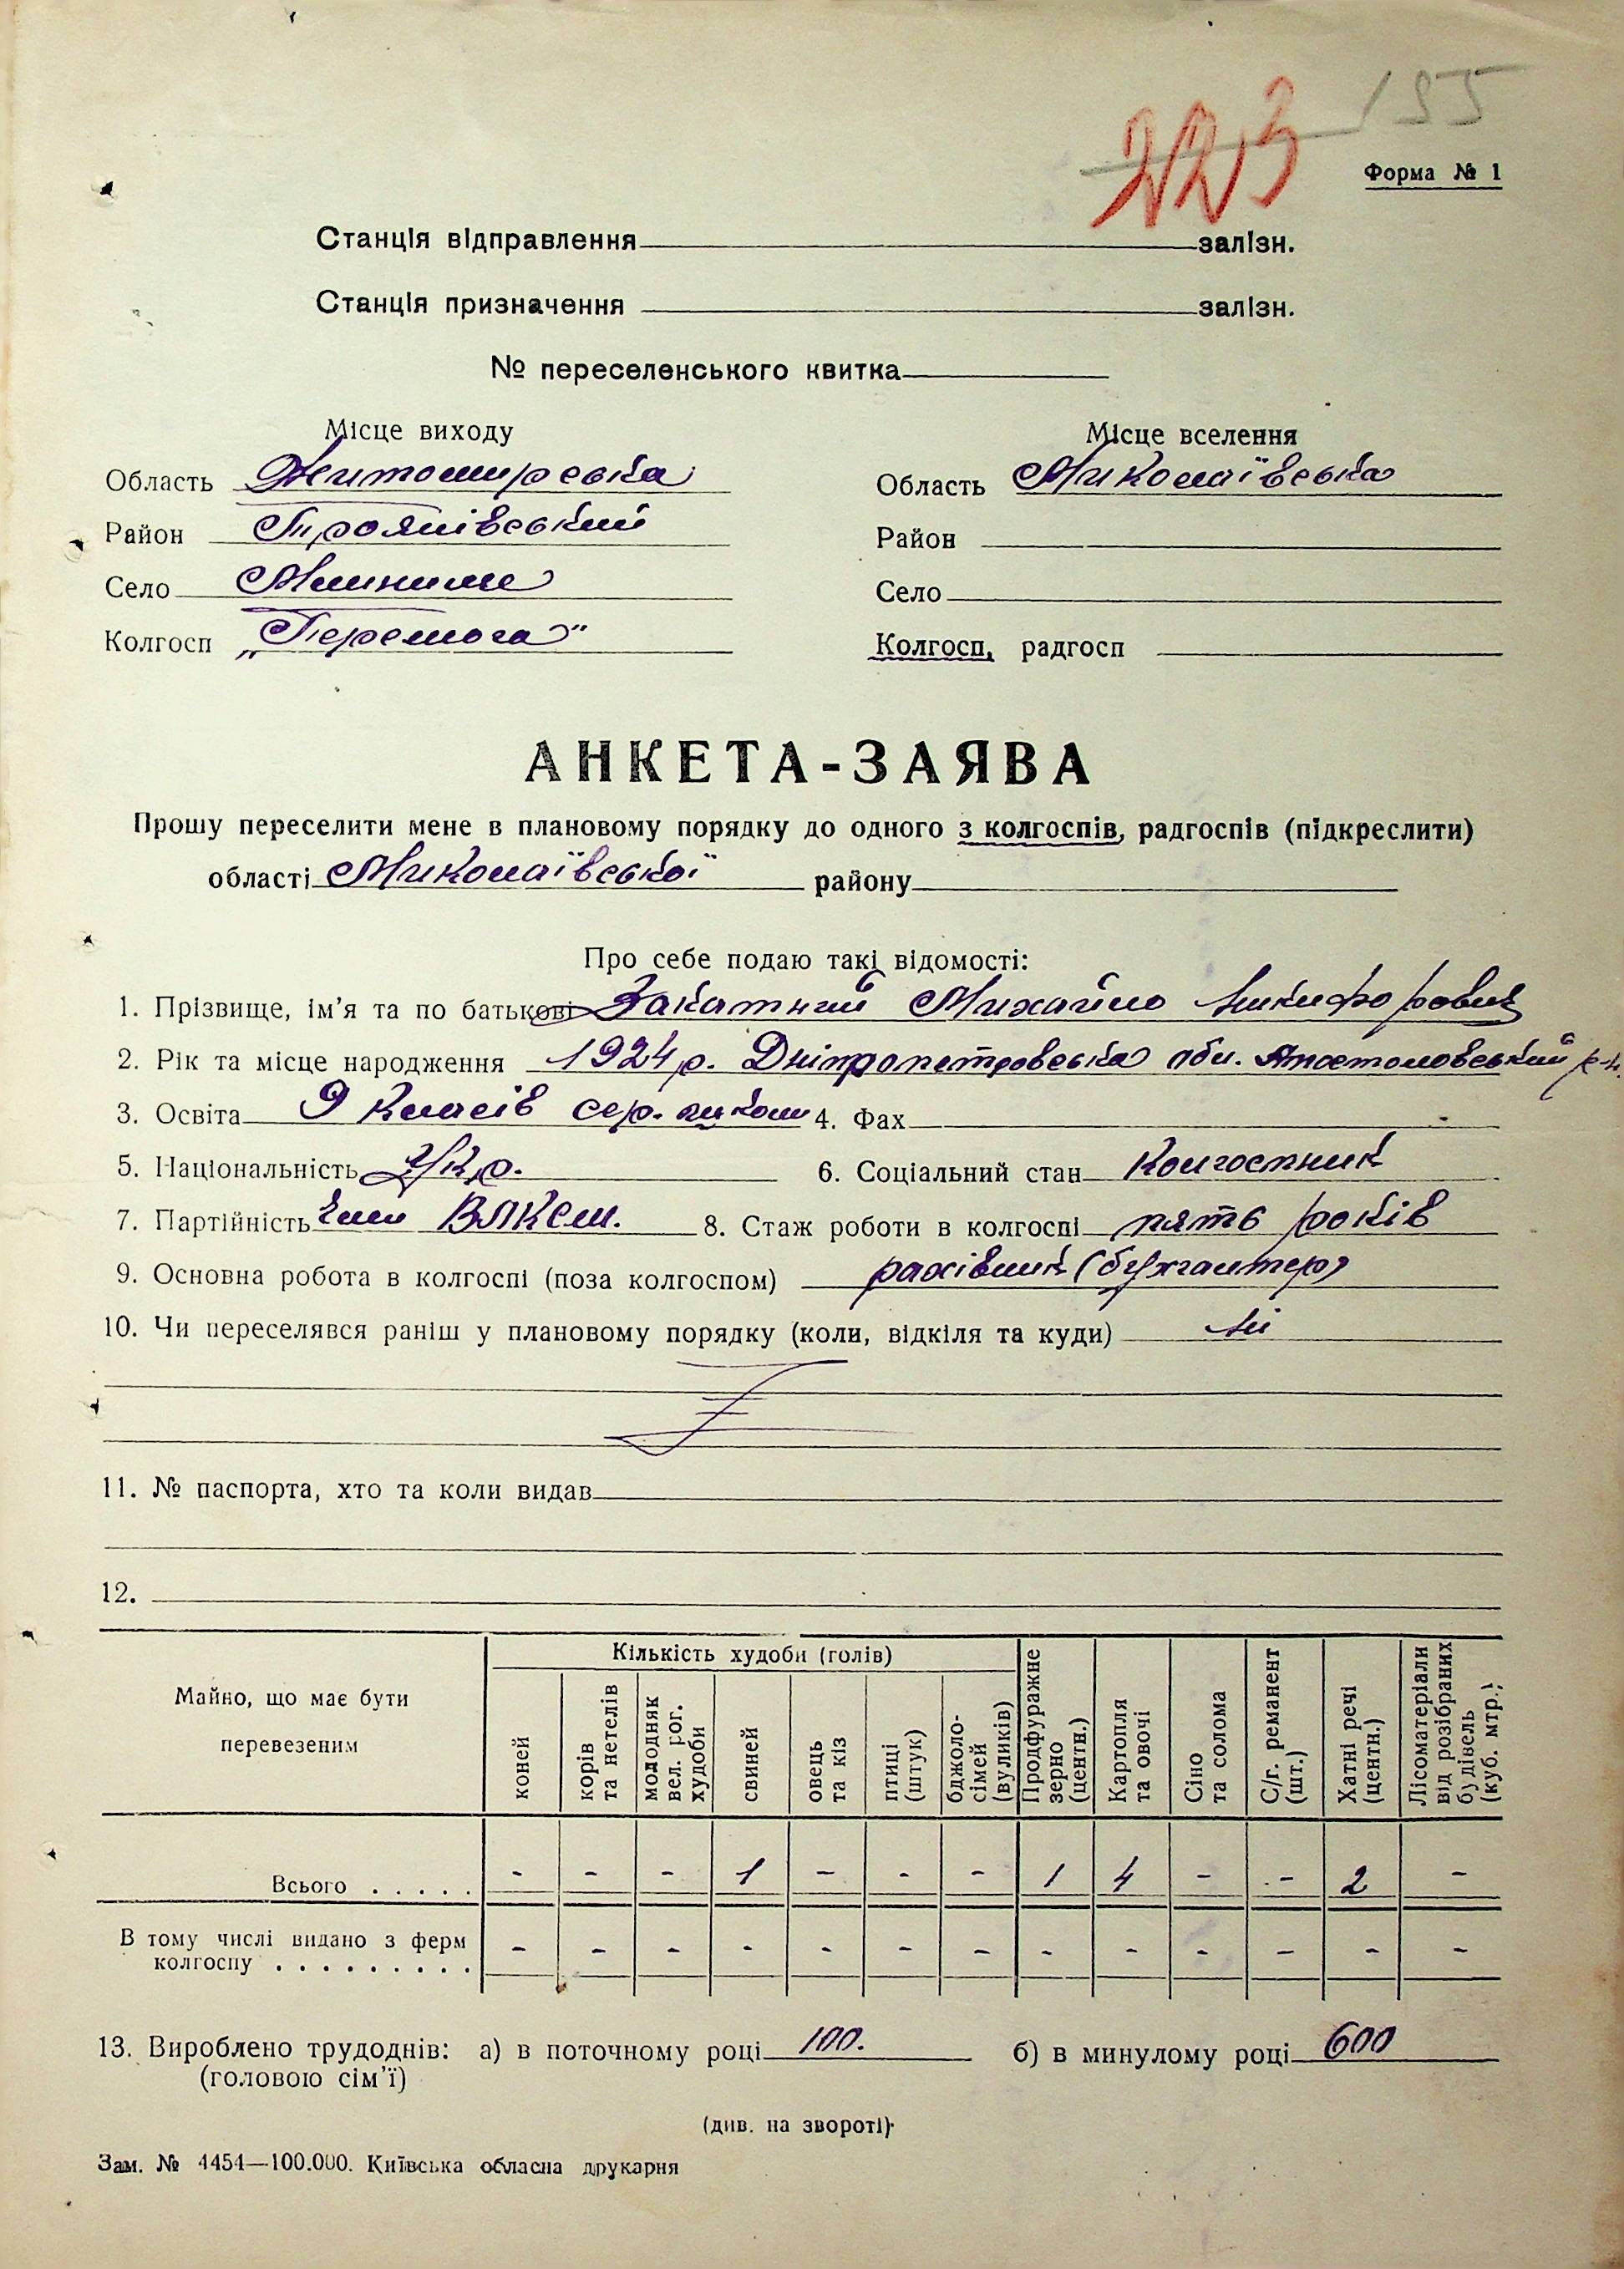 223 155
Форма № 1
Станція відправлення залізн.
Станція призначення залізн.
№ переселенського квитка
Місце виходу Місце вселення
Область Житомирська Область Миколаївська
Район Троянівський Район
Село Млинище Село
Колгосп „Перемога" Колгосп, радгосп
АНКЕТА-ЗАЯВА
Прошу переселити мене в плановому порядку до одного з колгоспів, радгоспів (підкреслити)
області Миколаївської району
Про себе подаю такі відомості:
1. Прізвище, ім'я та по батькові Закатний Михайло Никифорович
2. Рік та місце народження 1924 р. Дніпропетровська обл. Апостоловський р-н.
3. Освіта 9 класів сер. школи 4. Фах
5. Національність Укр. 6. Соціальний стан Колгоспник
7. Партійність Член ВЛКСМ. 8. Стаж роботи в колгоспі пять років
9. Основна робота в колгоспі (поза колгоспом) рахівник (бухгалтер)
10. Чи переселявся раніш у плановому порядку (коли, відкіля та куди) Ні
11. № паспорта, хто та коли видав
12.
Майно, що має бути перевезеним
Кількість худоби (голів)
коней
корів та нетелів
молодняк вел. рог. худоби
свиней
овець та кіз
птиці (штук)
бджоло-сімей (вуликів)
Продфуражне зерно (центн.)
Картопля та овочі
Сіно та солома
С/г. реманент (шт.)
Хатні речі (центн.)
Лісоматеріали від розібраних будівель (куб. мтр.)
Всього . . . . . - - - 1 - - - 1 4 - - 2 -
В тому числі видано з ферм
колгоспу . . . . . . . . . - - - - - - - - - - - - -
13. Вироблено трудоднів: а) в поточному році 100. б) в минулому році 600
(головою сім'ї)
(див. на звороті)
Зам. № 4454—100.000. Київська обласна друкарня